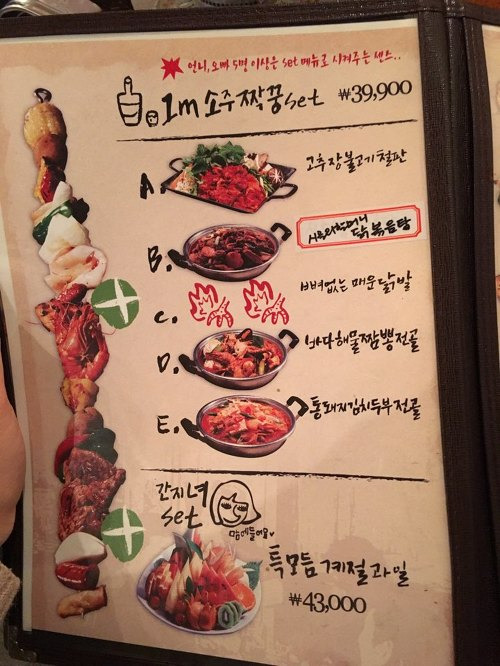 언니, 오빠 5명 이상은 set 메뉴로 시켜주는 센스..
1m 소주짝꿍 set ₩39,900
A. 고추장불고기철판
B. 닭볶음탕
C. 뼈없는 매운닭발
D. 바다해물짬뽕전골
E. 통돼지김치두부전골
간지녀
set
맘에들어요
특모듬계절과일
₩43,000